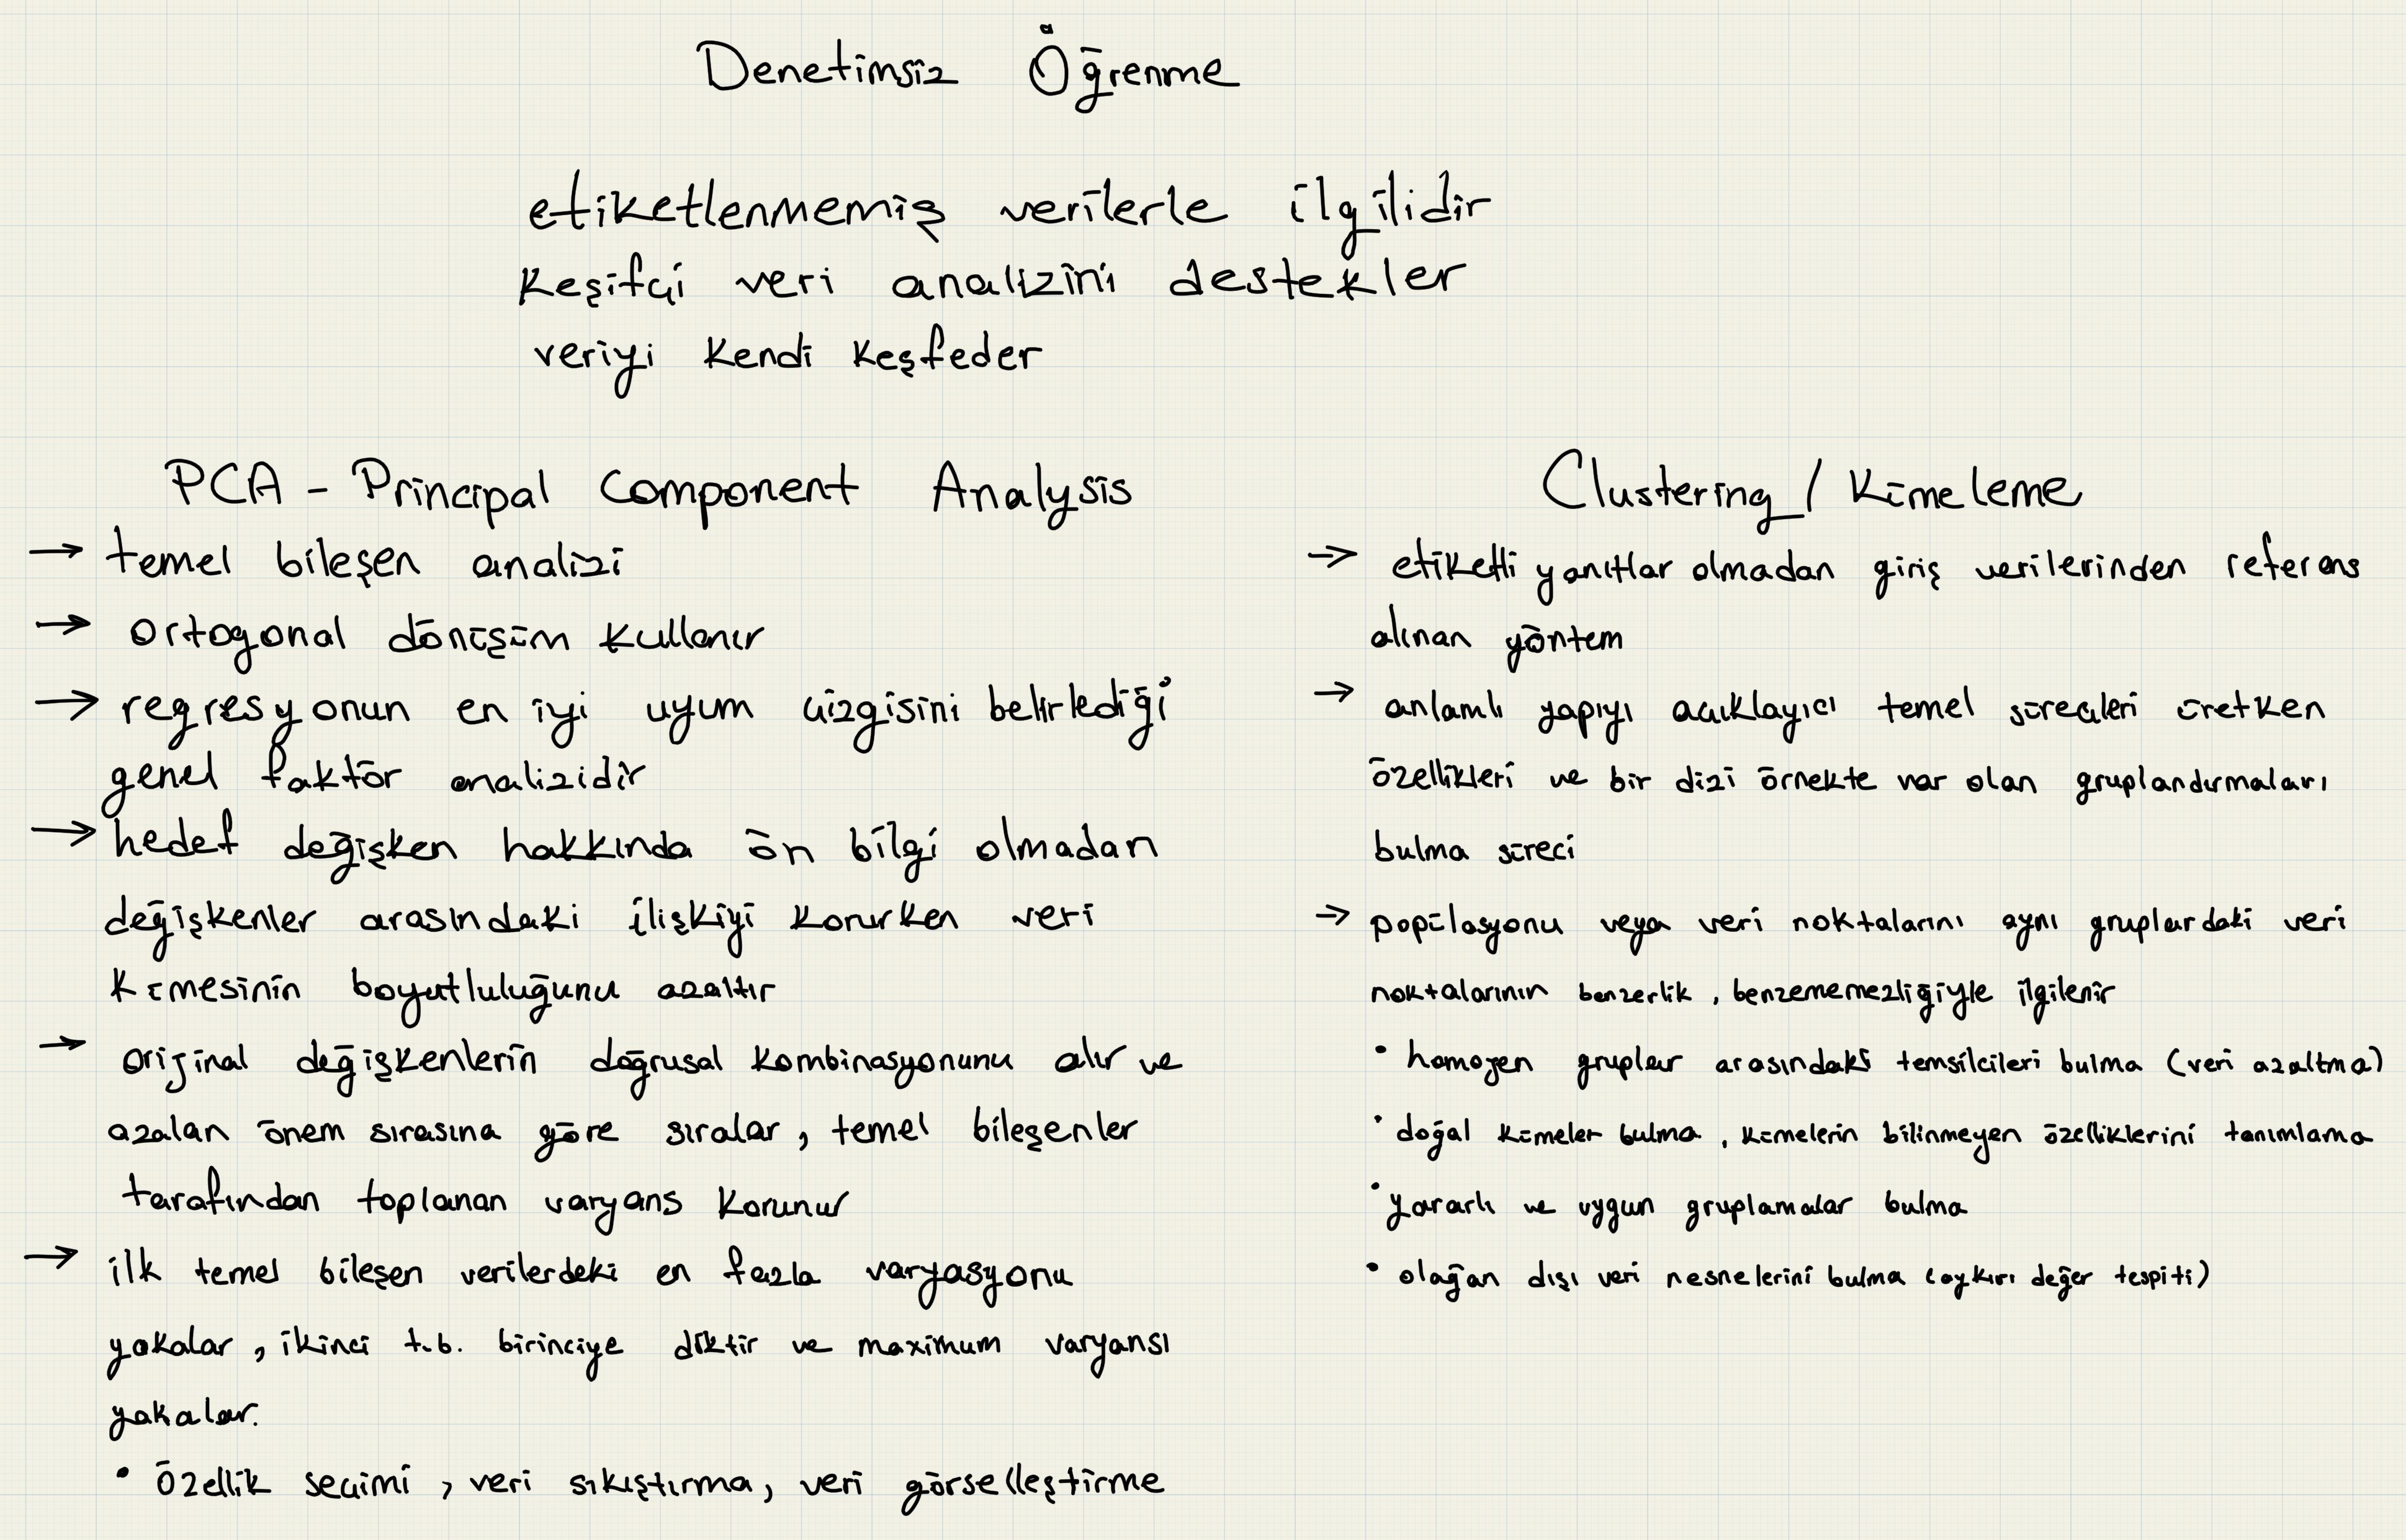 Denetimsiz Öğrenme
etiketlenmemiş verilerle ilgilidir
Keşifçi veri analizini destekler
veriyi kendi keşfeder
PCA - Principal Component Analysis
→ temel bileşen analizi
→ ortogonal dönüşüm kullanır
→ regresyonun en iyi uyum çizgisini belirlediği
genel faktör analizidir
→ hedef değişken hakkında ön bilgi olmadan
değişkenler arasındaki ilişkiyi korurken veri
kümesinin boyutluluğunu azaltır
→ orijinal değişkenlerin doğrusal kombinasyonunu alır ve
azalan önem sırasına göre sıralar, temel bileşenler
tarafından toplanan varyans korunur
→ ilk temel bileşen verilerdeki en fazla varyasyonu
yakalar, ikinci t.b. birinciye diktir ve maximum varyansı
yakalar.
• Özellik seçimi, veri sıkıştırma, veri görselleştirme
Clustering / Kümeleme
→ etiketli yanıtlar olmadan giriş verilerinden referans
alınan yöntem
→ anlamlı yapıyı açıklayıcı temel süreçleri üretken
özellikleri ve bir dizi örnekte var olan gruplandırmaları
bulma süreci
→ popülasyonu veya veri noktalarını aynı gruplardaki veri
noktalarının benzerlik, benzememezliğiyle ilgilenir
• homojen gruplar arasındaki temsilcileri bulma (veri azaltma)
• doğal kümeler bulma, kümelerin bilinmeyen özelliklerini tanımlama
• yararlı ve uygun gruplamalar bulma
• olağan dışı veri nesnelerini bulma (aykırı değer tespiti)